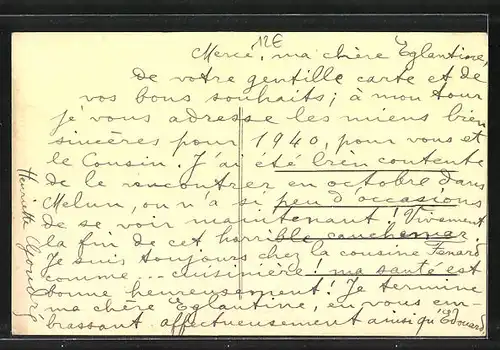 12€
Merci, ma chère Eglantine,
de votre gentille carte et de
vos bons souhaits; à mon tour
je vous adresse les miens bien
sincères pour 1940, pour vous et
le Cousin. J'ai été bien contente
de le rencontrer en octobre dans
Melun, on n'a si peu d'occasions
de se voir maintenant! Vivement
la fin de cet horrible cauchemar!
Je suis toujours chez la cousine Fenard
comme ... cuisinière! ma santé est
bonne heureusement! Je termine
ma chère Eglantine, en vous em-
brassant affectueusement ainsi qu'Edouard
Henriette